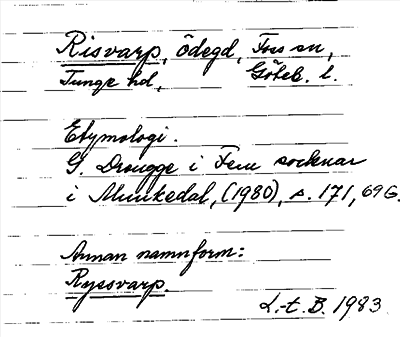 Risvarp, ödegd, Foss sn,
Tunge hd, Göteb. l.
Etymologi.
G. Drougge i Fem socknar
i Munkedal, (1980), s. 171, 69G.
Annan namnform:
Ryssvarp.
L.-t. B. 1983